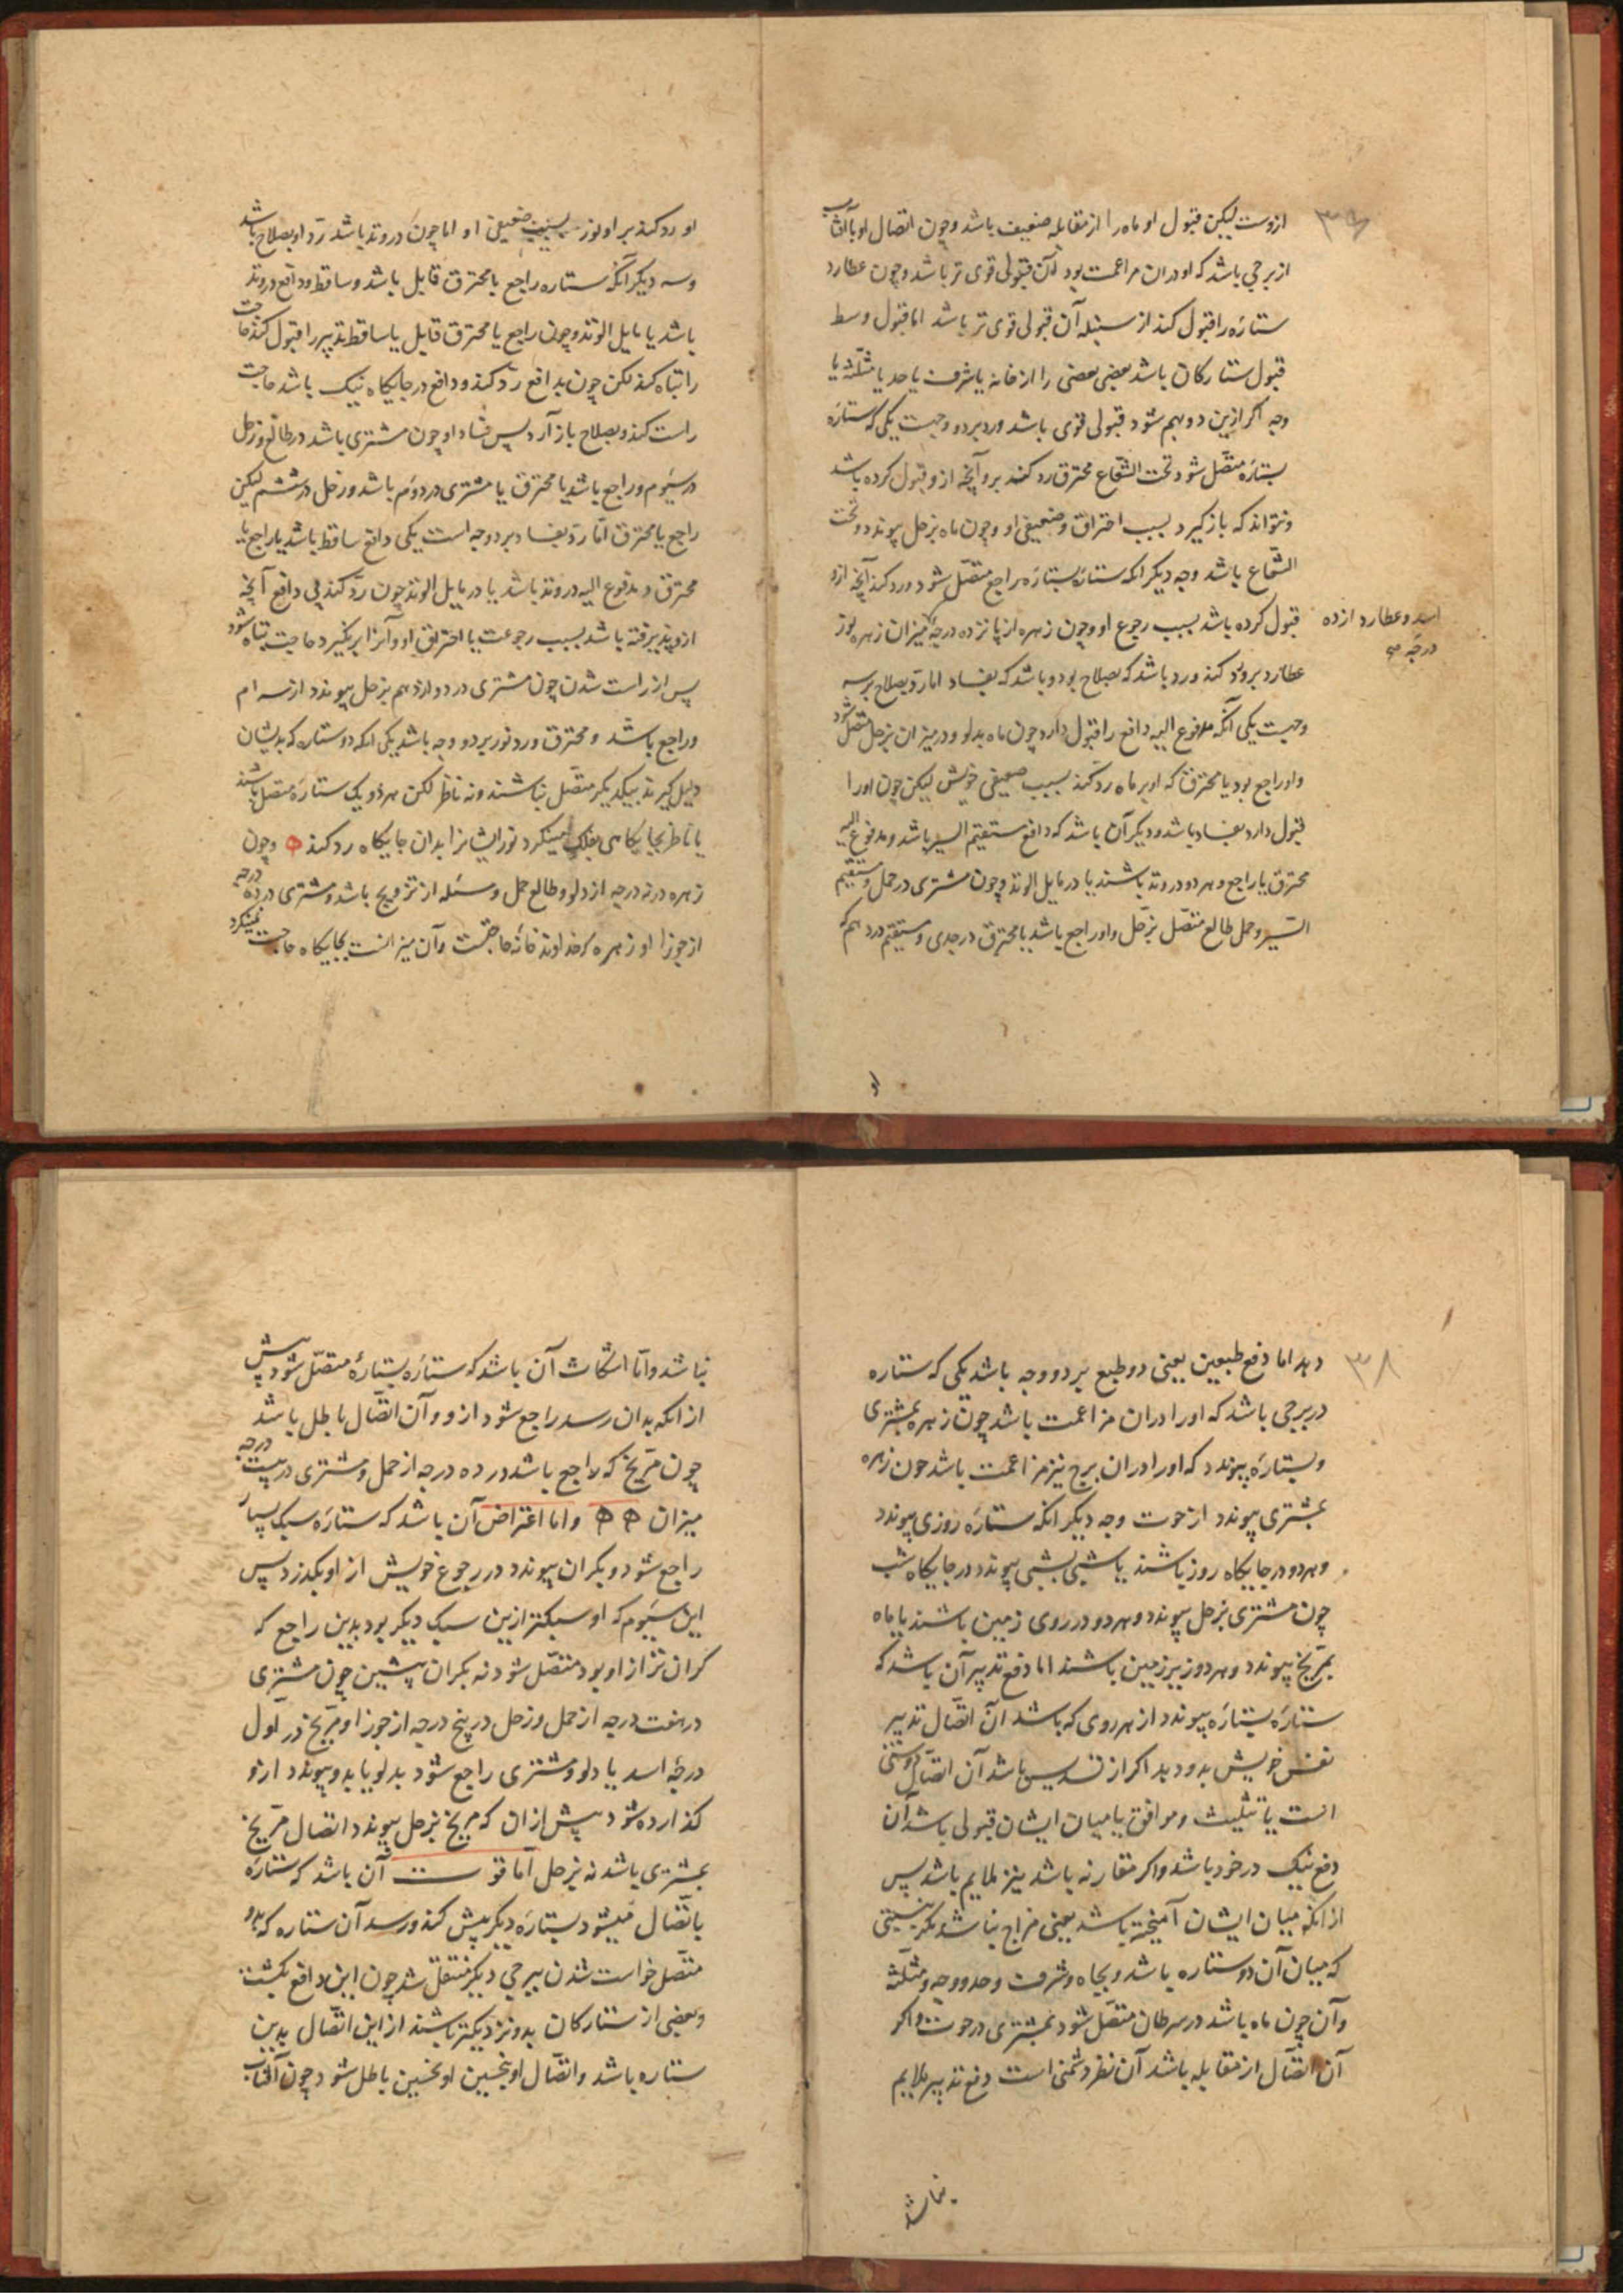 ۳۶
ازوست لیکن قبول او ماه را از مقابله ضعیف باشد وچون اتصال او بآفتاب
از برجی باشد که او دران مزاعمت بود آن قبولی قوی تر باشد وچون عطارد
ستاره را قبول کند از سنبله آن قبولی قوی تر باشد اما قبول وسط
قبول ستارکان باشد بعضی بعضی را از خانه یا شرف یا حد یا مثلثه یا
وجه اکر ازین دو بهم شود قبولی قوی باشد ورد بر دو وجهست یکی که ستاره
بستاره متصل شود تحت الشعاع محترق رد کند برو آنچه ازو قبول کرده باشد
ونتواند که باز کیرد بسبب احتراق وضعیفی او وچون ماه بزحل پیوندد وتحت
الشعاع باشد وجه دیکر انکه ستاره بستاره راجع متصل شود ورد کند آنچه ازو
قبول کرده باشد بسبب رجوع او وچون زهره از پانزده درجه میزان زهره نور
اسد وعطارد از ده
درجه
عطارد برو رد کند ورد باشد که بصلاح بود وباشد که بفساد اما رد بصلاح بر سه
وجهست یکی آنکه مدفوع الیه دافع را قبول دارد چون ماه بدلو ودر میزان بزحل متصل شود
واو راجع بود یا محترق که او بر ماه رد کند بسبب ضعیفی خویش لیکن چون او را
قبول دارد بفساد باشد ودیکر آن باشد که دافع مستقیم السیر باشد ومدفوع الیه
محترق یا راجع وهر دو در وتد باشند یا در مایل الوتد وچون مشتری در حمل ومستقیم
السیر وحمل طالع متصل بزحل واو راجع باشد یا محترق در جدی ومستقیم در دهم که
او رد کند بر او نور بسبب ضعیفی او اما چون در وتد باشد رد او بصلاح باشد
وسه دیکر آنکه ستاره راجع یا محترق قابل باشد وساقط ودافع در وتد
باشد یا مایل الوتد وچون راجع یا محترق قابل یا ساقط تدبیر را قبول کند حاجت
را تباه کند لکن چون بدافع رد کند ودافع در جایکاه نیک باشد حاجت
راست کند وبصلاح باز آرد پس فساد او چون مشتری باشد در طالع وزحل
در سیوم وراجع باشد یا محترق یا مشتری در دوم باشد وزحل در ششم لیکن
راجع یا محترق اما رد بفساد بر دو وجه است یکی دافع ساقط باشد یا راجع یا
محترق ومدفوع الیه در وتد باشد یا در مایل الوتد چون رد کند پی دافع آنچه
ازو پذیرفته باشد بسبب رجوعت یا احتراق او وآنرا بر نکیرد حاجت تباه شود
پس از راست شدن چون مشتری در دوازدهم بزحل پیوندد از سه ام
وراجع باشد ومحترق ورد نور بر دو وجه باشد یکی انکه دو ستاره که بدیشان
دلیل کیرند بیکدیکر متصل نباشند ونه ناظر لکن هر دو بیک ستاره متصل باشند
یا ناظر بجایکاهی بفلک مینکرد نور ایشانرا بدان جایکاه رد کند وچون
زهره در نه درجه از دلو وطالع حمل ومسئله از تزویج باشد ومشتری در ده درجه
از جوزا او زهره که خداوند خانه حاجتست وآن میزانست بجایکاه حاجت نمینکرد
۳۸
دهد اما دفع طبیعین یعنی دو طبع بر دو وجه باشد یکی که ستاره
در برجی باشد که اورا دران مزاعمت باشد چون زهره بمشتری
وبستاره پیوندد که اورا دران برج نیز مزاعمت باشد چون زهره
بمشتری پیوندد از حوت وجه دیکر انکه ستاره روزی پیوندد
وهر دو در جایکاه روز باشند یا شبی بشبی پیوندد در جایکاه شب
چون مشتری بزحل پیوندد وهر دو در روی زمین باشند یا ماه
بمریخ پیوندد وهر دو زیر زمین باشند اما دفع تدبیر آن باشد که
ستاره بستاره پیوندد از هر روی که باشد آن اتصال تدبیر
نفس خویش بدو دهد اکر از تسدیس باشد آن اتصال دوستی
است یا تثلیث وموافق یا میان ایشان قبولی باشد آن
دفع نیک در خود باشد واکر مقارنه باشد نیز ملایم باشد پس
از انکه میان ایشان آمیخته باشد یعنی مزاج نباشد مکر بنسبتی
که میان آن دو ستاره باشد وبجاه وشرف وحد ووجه ومثلثه
وآن چون ماه باشد در سرطان متصل شود بمشتری در حوت واکر
آن اتصال از مقابله باشد آن نظر دشمنی است دفع تدبیر ملایم
نباشد
نباشد واما انتکاث آن باشد که ستاره بستارهٔ متصل شود پیش
از انکه بدان رسد راجع شود ازو وآن اتصال باطل باشد
چون مریخ که راجع باشد در ده درجه از حمل ومشتری در بیست درجه
میزان واما اعتراض آن باشد که ستاره سبک سیار
راجع شود وبکران پیوندد در رجوع خویش از او بکذرد پس
این سیوم که او سبکتر ازین سبک دیکر بود بدین راجع که
کران تر از او بود متصل شود نه بکران پیشین چون مشتری
در هفت درجه از حمل وزحل در پنج درجه از جوزا ومریخ در اول
درجه اسد یا دلو ومشتری راجع شود بدلو یا بدو پیوندد ازو
کذارده شود پیش ازان که مریخ بزحل پیوندد اتصال مریخ
بمشتری باشد نه بزحل اما فوت آن باشد که ستاره
باتصال میشود بستاره دیکر پیش کند ورسد آن ستاره که بدو
متصل خواست شدن ببرجی دیکر منتقل شد چون این دافع بکشت
وبعضی از ستارکان بدو نزدیکتر باشند از این اتصال بدین
ستاره باشد واتصال او بنخسین او نخسین باطل شود چون آفتاب